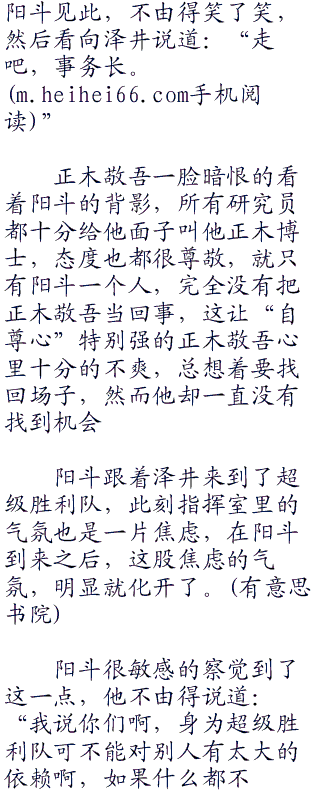 阳斗见此，不由得笑了笑，
然后看向泽井说道：“走
吧，事务长。
(m.heihei66.com手机阅
读)”
正木敬吾一脸暗恨的看
着阳斗的背影，所有研究员
都十分给他面子叫他正木博
士，态度也都很尊敬，就只
有阳斗一个人，完全没有把
正木敬吾当回事，这让“自
尊心”特别强的正木敬吾心
里十分的不爽，总想着要找
回场子，然而他却一直没有
找到机会
阳斗跟着泽井来到了超
级胜利队，此刻指挥室里的
气氛也是一片焦虑，在阳斗
到来之后，这股焦虑的气
氛，明显就化开了。(有意思
书院)
阳斗很敏感的察觉到了
这一点，他不由得说道：
“我说你们啊，身为超级胜
利队可不能对别人有太大的
依赖啊，如果什么都不